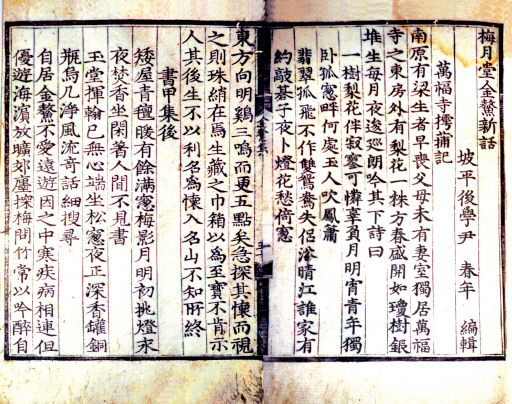 梅月堂金鰲新話
坡平後學尹 春年 編輯
萬福寺摴蒱記
南原有梁生者早喪父母未有妻室獨居萬福
寺之東房外有梨花一株方春盛開如瓊樹銀
堆生每月夜逡巡朗吟其下詩曰
一樹梨花伴寂寥可憐辜負月明宵青年獨
臥孤窻畔何處玉人吹鳳簫
翡翠孤飛不作雙鴛鴦失侶浴晴江誰家有
約敲碁子夜卜燈花愁倚窻
東方向明鷄三鳴而更五點矣急探其懷而視
之則珠綃在焉生藏之巾箱以爲至寶不肯示
人其後生不以利名爲懷入名山不知所終
書甲集後
矮屋青氈暖有餘滿窻梅影月明初挑燈永
夜焚香坐閑著人間不見書
玉堂揮翰已無心端坐松窻夜正深香罐銅
瓶烏几淨風流奇話細搜尋
自居金鰲不愛遠遊因之中寒疾病相連但
優遊海濱放曠郊廛探梅問竹常以吟醉自